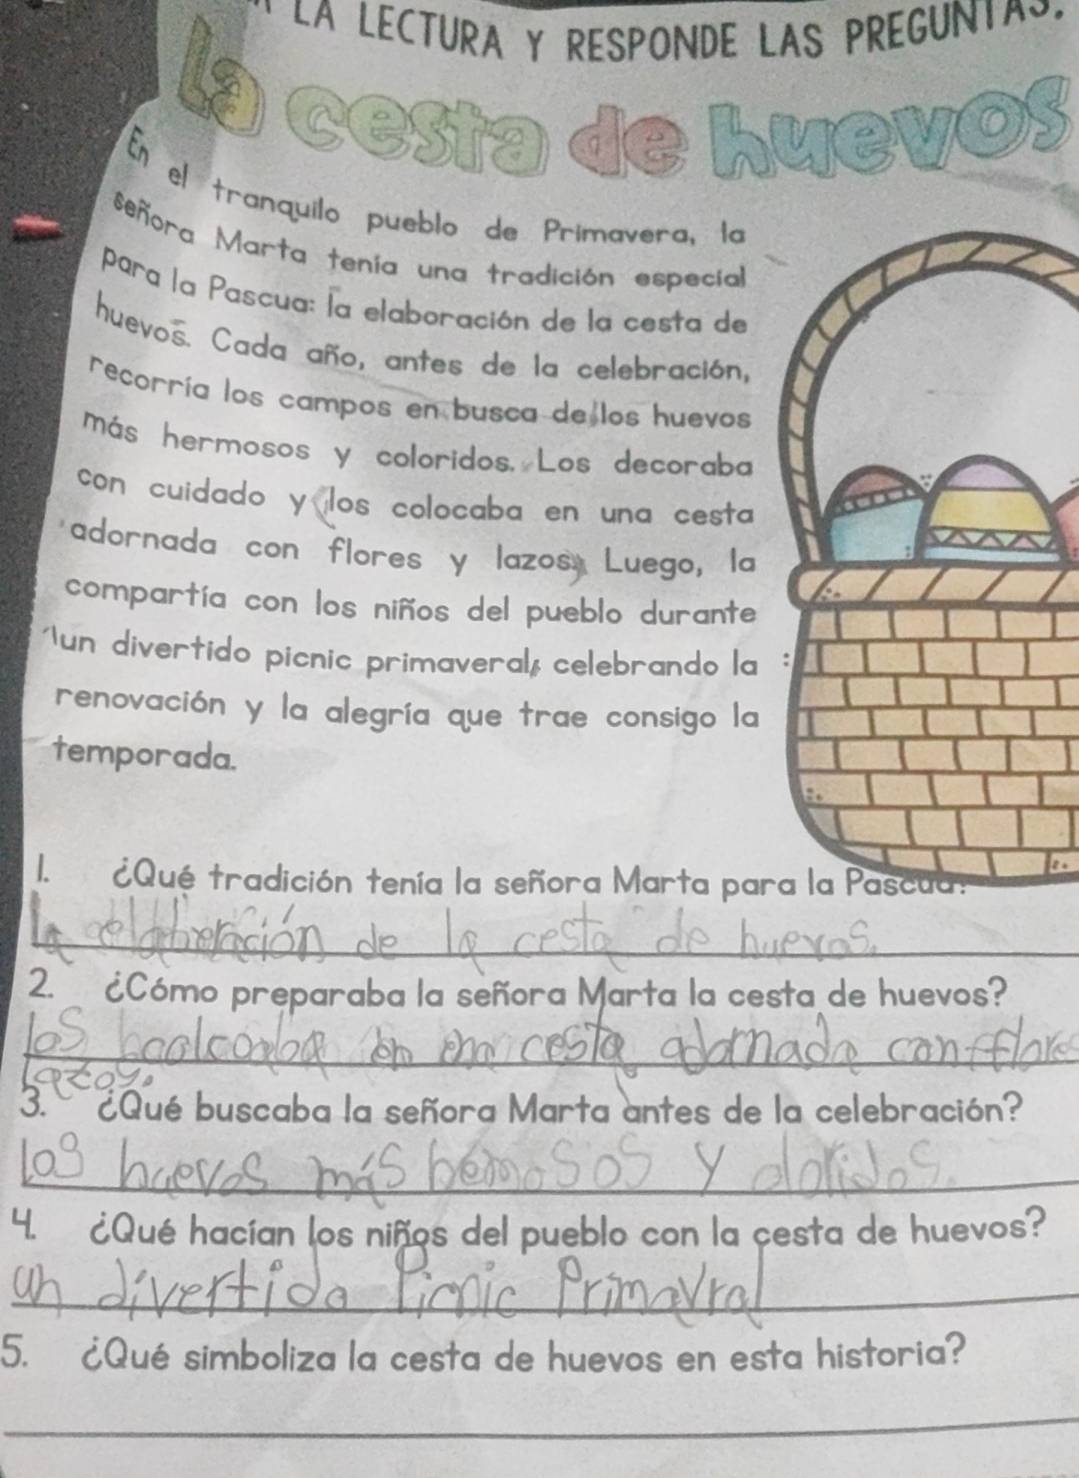 LA LECTURA Y RESPONDE LAS PREGUNTAS.
La cesta de huevos
En el tranquilo pueblo de Primavera, la
señora Marta tenía una tradición especial
para la Pascua: la elaboración de la cesta de
huevos. Cada año, antes de la celebración,
recorría los campos en busca de los huevos
más hermosos y coloridos. Los decoraba
con cuidado y los colocaba en una cesta
adornada con flores y lazos. Luego, la
compartía con los niños del pueblo durante
un divertido picnic primaveral, celebrando la
renovación y la alegría que trae consigo la
temporada.
1. ¿Qué tradición tenía la señora Marta para la Pascua?
la elaberación de la cesta de huevos.
2. ¿Cómo preparaba la señora Marta la cesta de huevos?
los en cesta adornada con flores
lazos.
3. ¿Qué buscaba la señora Marta antes de la celebración?
los huevos más hemosos y
4. ¿Qué hacían los niños del pueblo con la cesta de huevos?
un divertido Picnic Primavral
5. ¿Qué simboliza la cesta de huevos en esta historia?